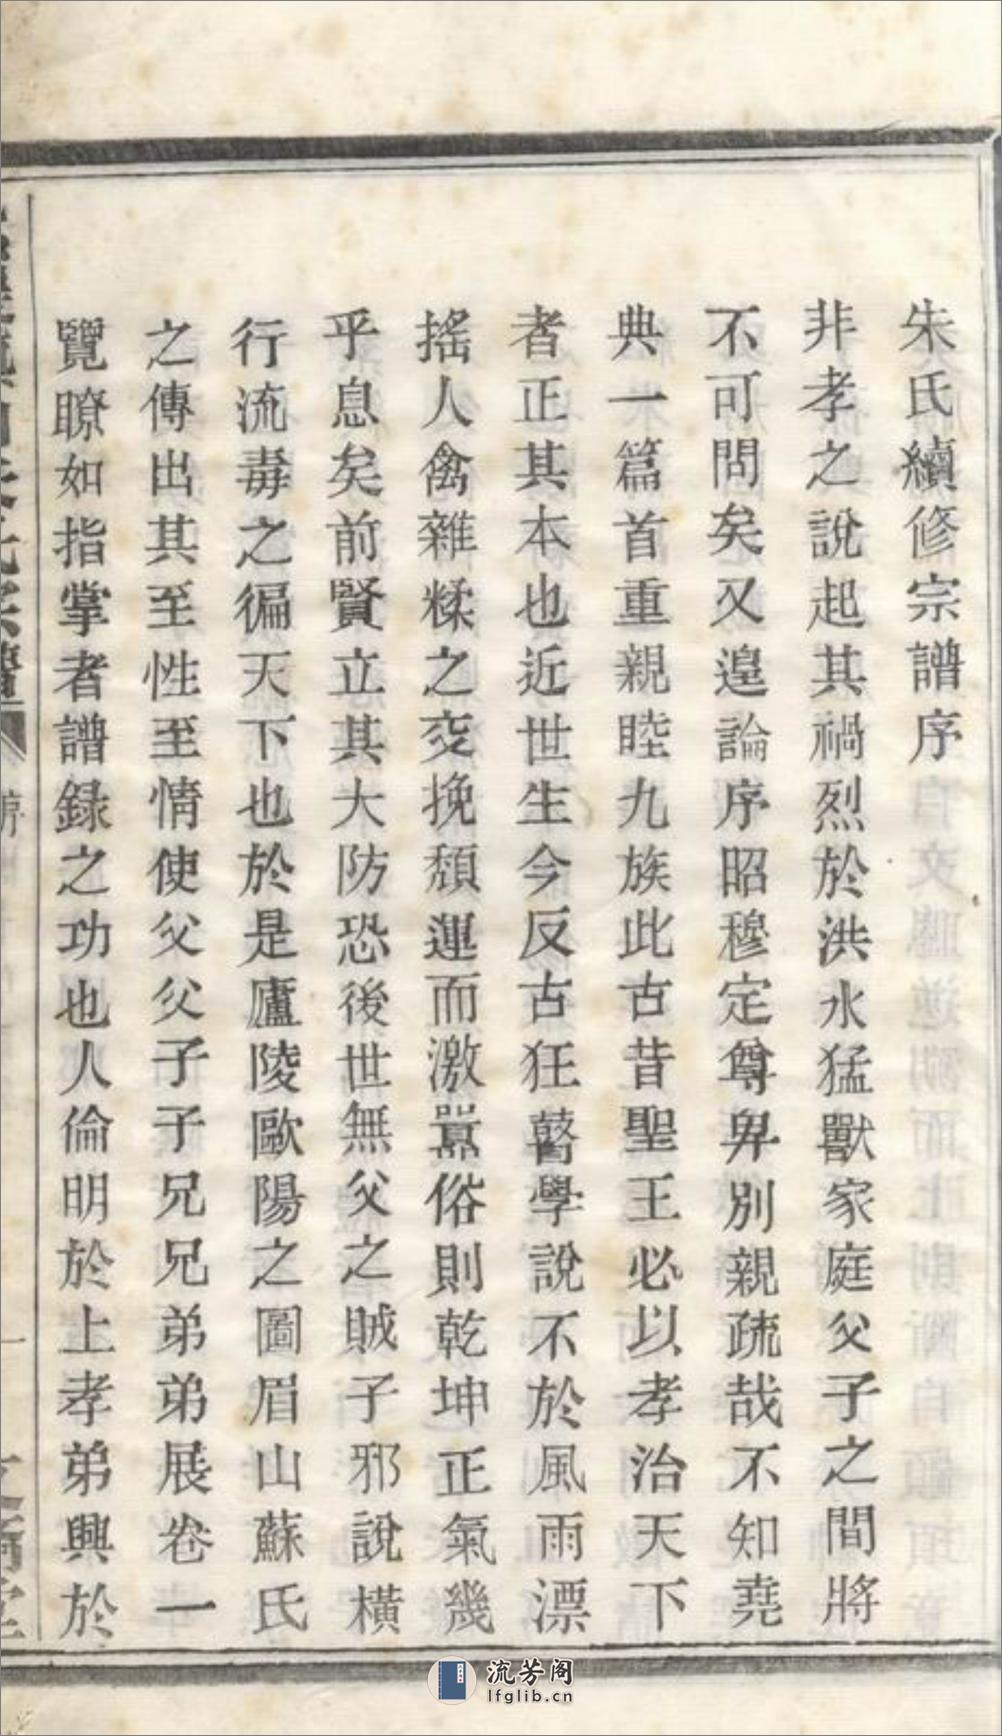 朱氏續修宗譜序
非孝之說起其禍烈於洪水猛獸家庭父子之間將
不可問矣又遑論序昭穆定尊卑別親疏哉不知堯
典一篇首重親睦九族此古昔聖王必以孝治天下
者正其本也近世生今反古狂瞽學說不於風雨漂
搖人禽雜糅之交挽頹運而激囂俗則乾坤正氣幾
乎息矣前賢立其大防恐後世無父之賊子邪說橫
行流毒之徧天下也於是廬陵歐陽之圖眉山蘇氏
之傳出其至性至情使父父子子兄兄弟弟展卷一
覽瞭如指掌者譜録之功也人倫明於上孝弟興於
序
一
流芳阁
lfglib.cn